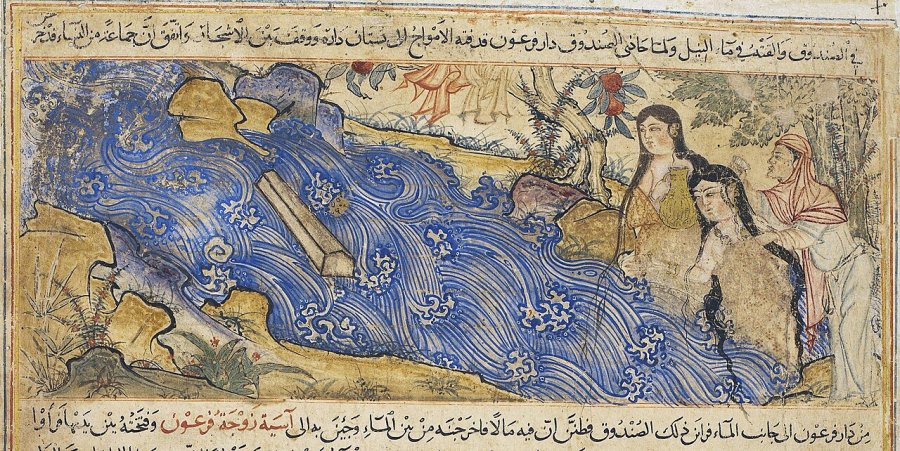 في الصندوق والقته في ماء النيل ولما حاذى الصندوق دار فرعون قذفته الامواج الى بستان داره ووقف بين الاشجار واتفق ان جماعة من النساء قد خرجن
من دار فرعون الى جانب الماء فراين ذلك الصندوق فظنن ان فيه مالا فاخرجنه من بين الماء وجئن به الى آسية زوجة فرعون وفتحنه بين يديها فرأوا